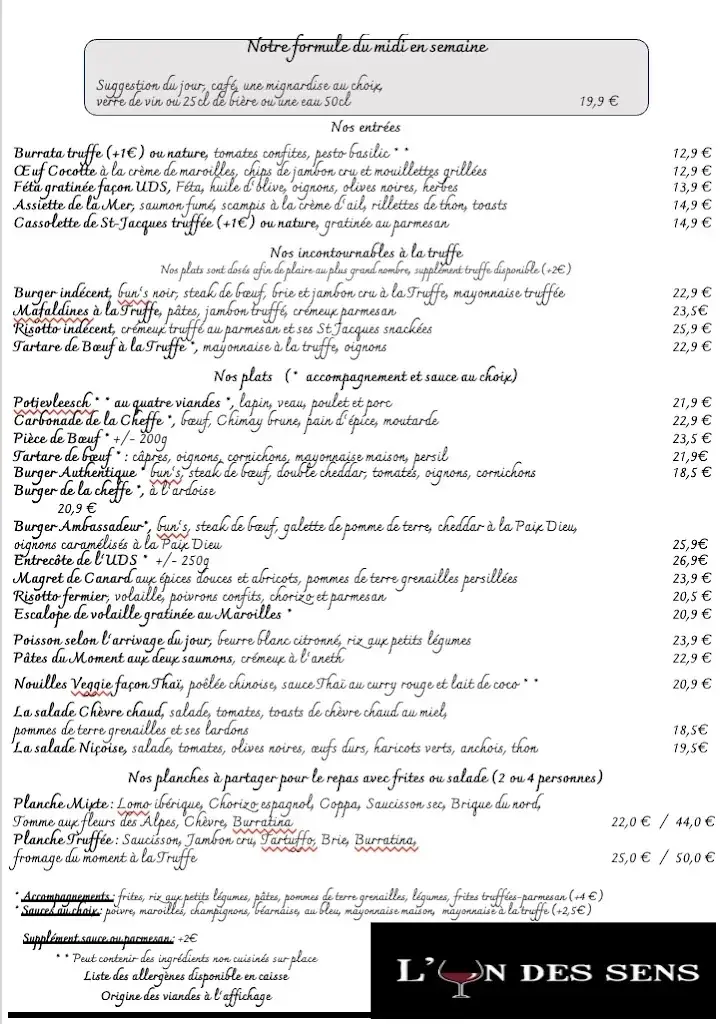 Notre formule du midi en semaine
Suggestion du jour, café, une mignardise au choix,
verre de vin ou 25cl de bière ou une eau 50cl 19,9 €
Nos entrées
Burrata truffe (+1€) ou nature, tomates confites, pesto basilic * * 12,9 €
Œuf Cocotte à la crème de maroilles, chips de jambon cru et mouillettes grillées 12,9 €
Féta gratinée façon UDS, Féta, huile d'olive, oignons, olives noires, herbes 13,9 €
Assiette de la Mer, saumon fumé, scampis à la crème d'ail, rillettes de thon, toasts 14,9 €
Cassolette de St-Jacques truffée (+1€) ou nature, gratinée au parmesan 14,9 €
Nos incontournables à la truffe
Nos plats sont dosés afin de plaire au plus grand nombre, supplément truffe disponible (+2€)
Burger indécent, bun's noir, steak de bœuf, brie et jambon cru à la Truffe, mayonnaise truffée 22,9 €
Mafaldines à la Truffe, pâtes, jambon truffé, crémeux parmesan 23,5€
Risotto indécent, crémeux truffé au parmesan et ses St Jacques snackées 25,9 €
Tartare de Bœuf à la Truffe *, mayonnaise à la truffe, oignons 22,9 €
Nos plats (* accompagnement et sauce au choix)
Potjevleesch * * au quatre viandes *, lapin, veau, poulet et porc 21,9 €
Carbonade de la Cheffe *, bœuf, Chimay brune, pain d'épice, moutarde 22,9 €
Pièce de Bœuf * +/- 200g 23,5 €
Tartare de bœuf * : câpres, oignons, cornichons, mayonnaise maison, persil 21,9€
Burger Authentique * bun's, steak de bœuf, double cheddar, tomates, oignons, cornichons 18,5 €
Burger de la cheffe *, à l'ardoise
20,9 €
Burger Ambassadeur*, bun's, steak de bœuf, galette de pomme de terre, cheddar à la Paix Dieu,
oignons caramélisés à la Paix Dieu 25,9€
Entrecôte de l'UDS * +/- 250g 26,9€
Magret de Canard aux épices douces et abricots, pommes de terre grenailles persillées 23,9 €
Risotto fermier, volaille, poivrons confits, chorizo et parmesan 20,5 €
Escalope de volaille gratinée au Maroilles * 20,9 €
Poisson selon l'arrivage du jour, beurre blanc citronné, riz aux petits légumes 23,9 €
Pâtes du Moment aux deux saumons, crémeux à l'aneth 22,9 €
Nouilles Veggie façon Thaï, poêlée chinoise, sauce Thaï au curry rouge et lait de coco * * 20,9 €
La salade Chèvre chaud, salade, tomates, toasts de chèvre chaud au miel,
pommes de terre grenailles et ses lardons 18,5€
La salade Niçoise, salade, tomates, olives noires, œufs durs, haricots verts, anchois, thon 19,5€
Nos planches à partager pour le repas avec frites ou salade (2 ou 4 personnes)
Planche Mixte : Lomo ibérique, Chorizo espagnol, Coppa, Saucisson sec, Brique du nord,
Tomme aux fleurs des Alpes, Chèvre, Burratina 22,0 € / 44,0 €
Planche Truffée : Saucisson, Jambon cru, Tartuffo, Brie, Burratina,
fromage du moment à la Truffe 25,0 € / 50,0 €
* Accompagnements : frites, riz aux petits légumes, pâtes, pommes de terre grenailles, légumes, frites truffées-parmesan (+4 €)
* Sauces au choix : poivre, maroilles, champignons, béarnaise, au bleu, mayonnaise maison, mayonnaise à la truffe (+2,5€)
Supplément sauce ou parmesan : +2€
* * Peut contenir des ingrédients non cuisinés sur place
Liste des allergènes disponible en caisse
Origine des viandes à l'affichage
L'UN DES SENS